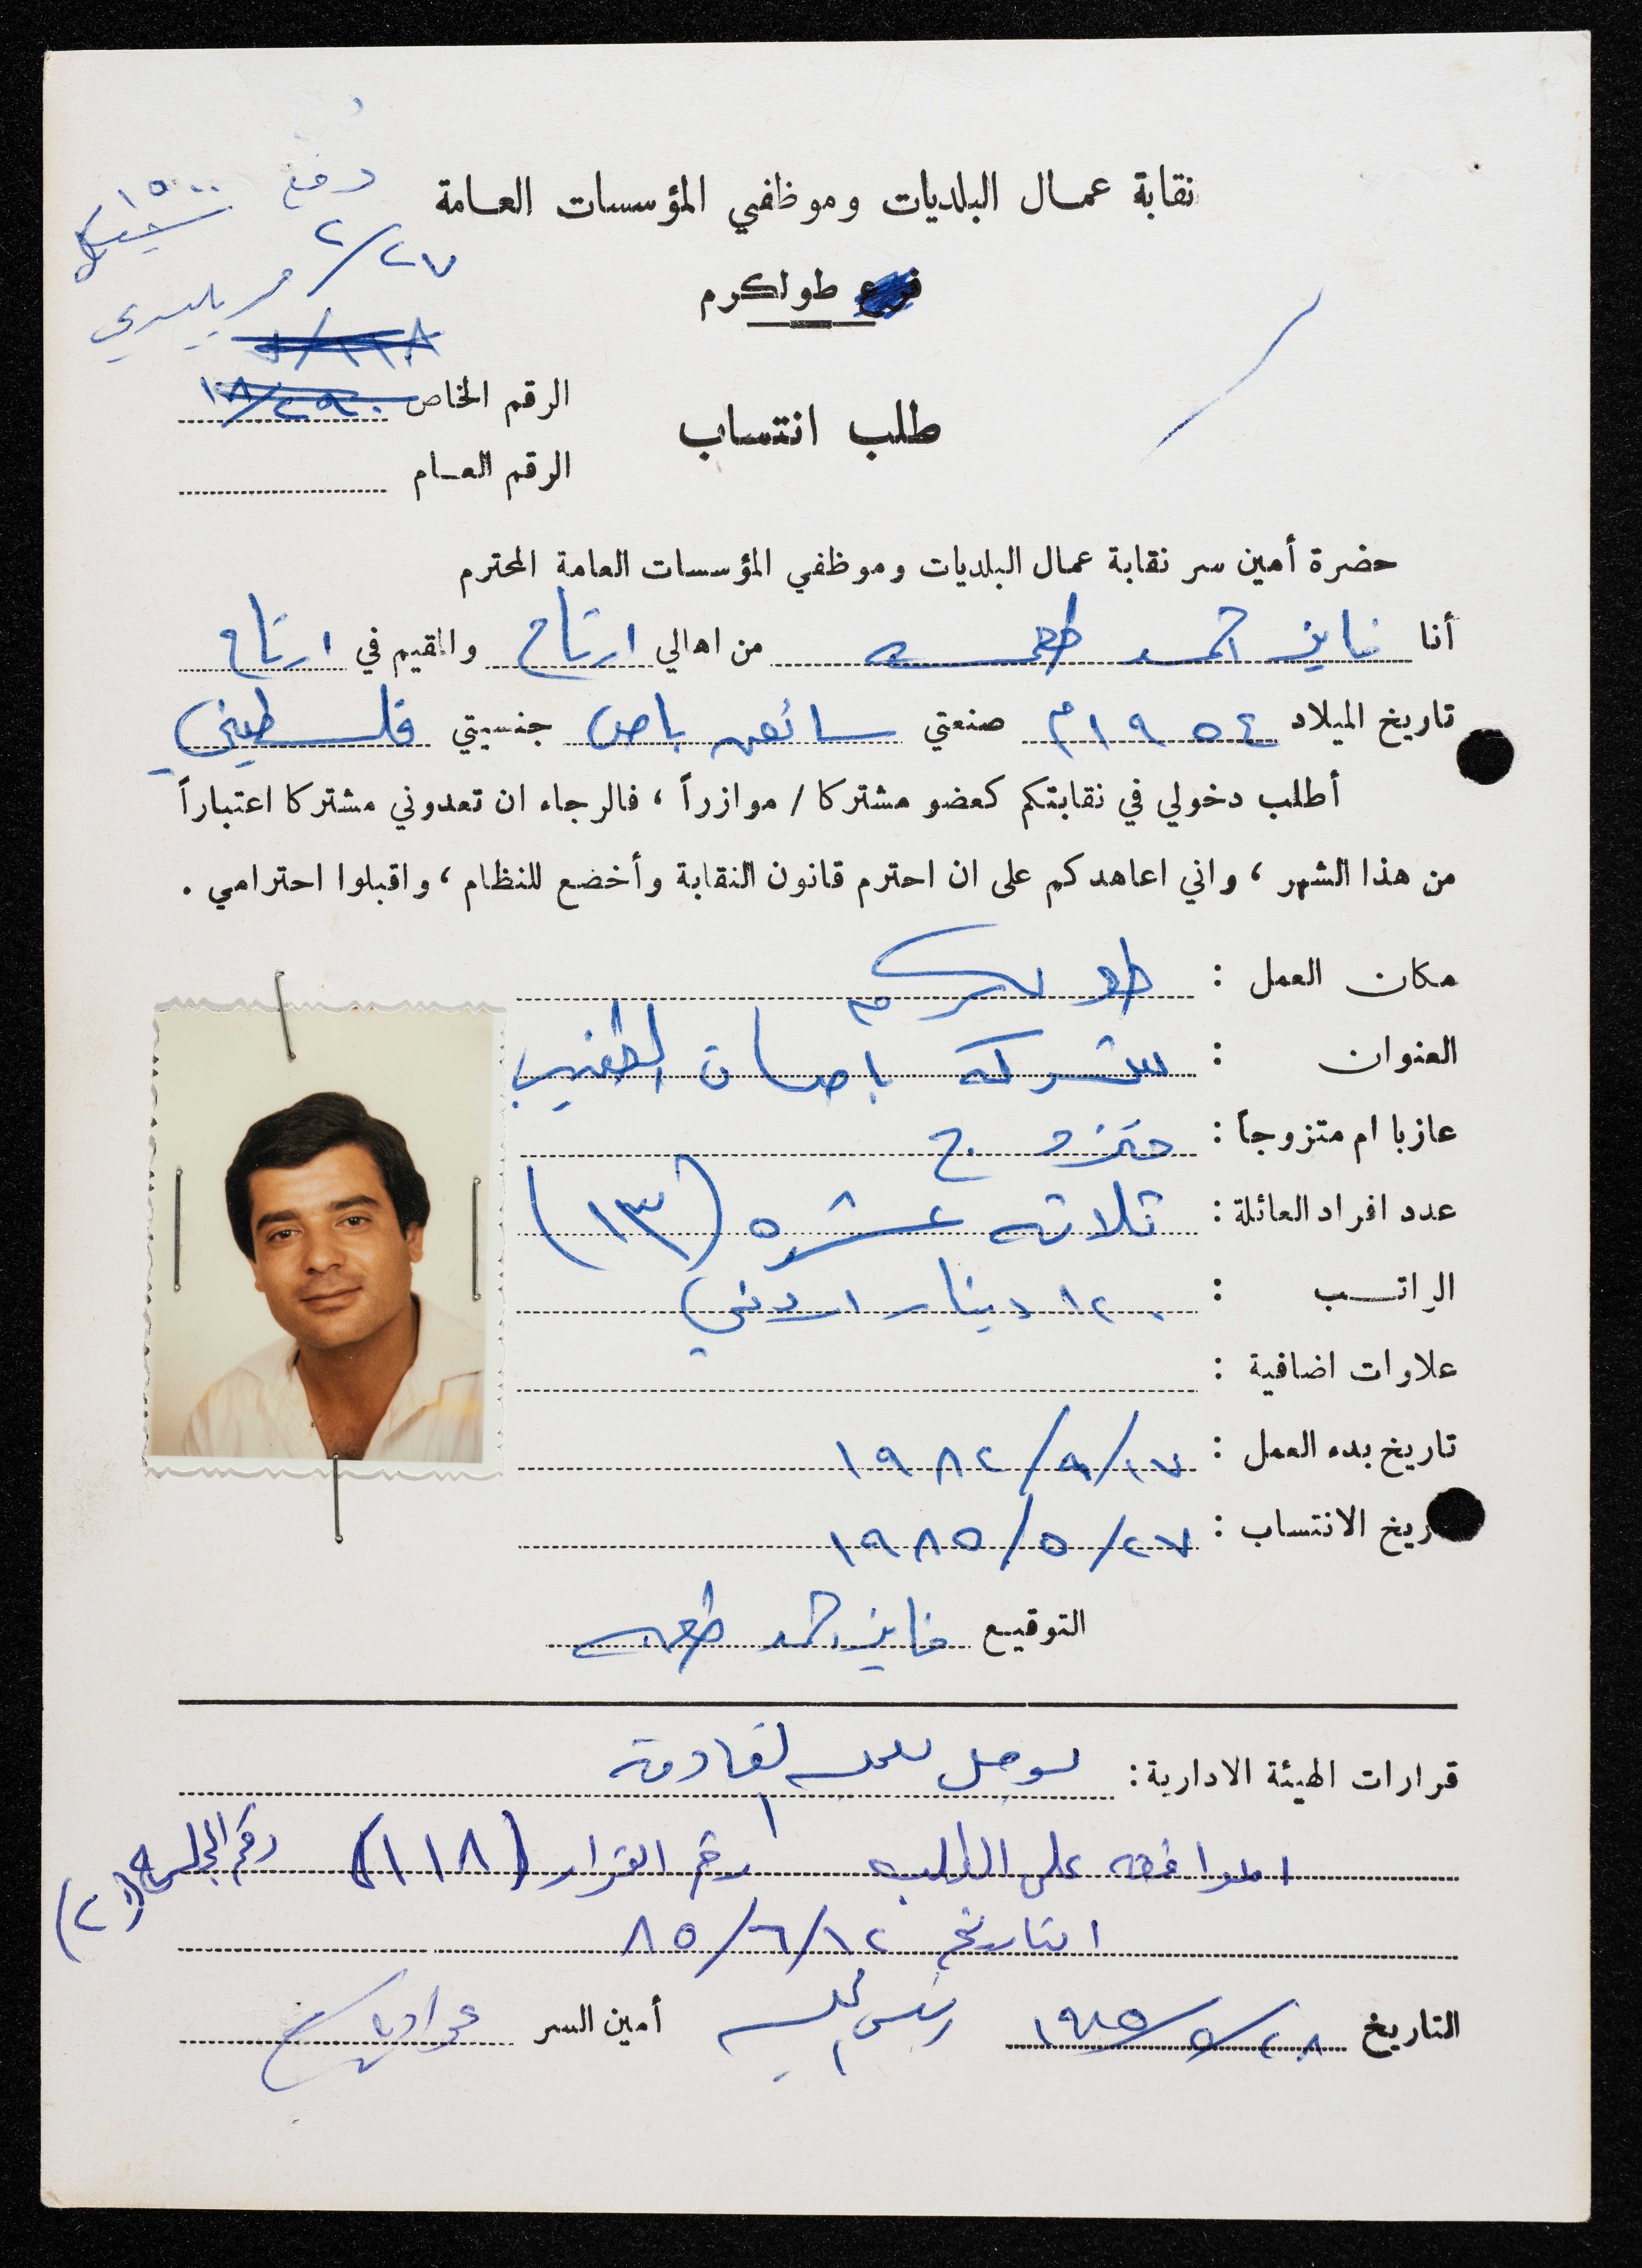 دفع ١٥٠٠
شيكل
٢/٢٧
نقابة عمــال البلديات وموظفي المؤسسات العــامة
فرع طولكرم
الرقم الخاص ١٨/٢٩٠
طلب انتساب
الرقم العــام
حضرة أمين سر نقابة عمال البلديات وموظفي المؤسسات العامة المحترم
أنا فايز احمد طعمه من اهالي ارتاح والمقيم في ارتاح
تاريخ الميلاد ١٩٥٤م صنعتي سائق باص جنسيتي فلسطيني
أطلب دخولي في نقابتكم كعضو مشتركا / موازراً ، فالرجاء ان تعدوني مشتركا اعتباراً
من هذا الشهر ، واني اعاهدكم على ان احترم قانون النقابة وأخضع للنظام ، واقبلوا احترامي .
مكان العمل : طولكرم
العنوان : شركه باصات الطنيب
عازبا ام متزوجاً : متزوج
عدد افراد العائلة : ثلاثه عشره (١٣)
الراتــب : ١٢٠ دينار اردني
علاوات اضافية :
تاريخ بدء العمل : ١٩٨٢/٩/١٧
ريخ الانتساب : ١٩٨٥/٥/٢٧
التوقيع فايز احمد طعمه
قرارات الهيئة الادارية : القادمة
الموافقه على الطلب رقم القرار (١١٨) رقم الجلسه (٢)
التاريخ ٨٥/٦/١٢
التاريخ ١٩٨٥/٥/٢٨ أمين السر